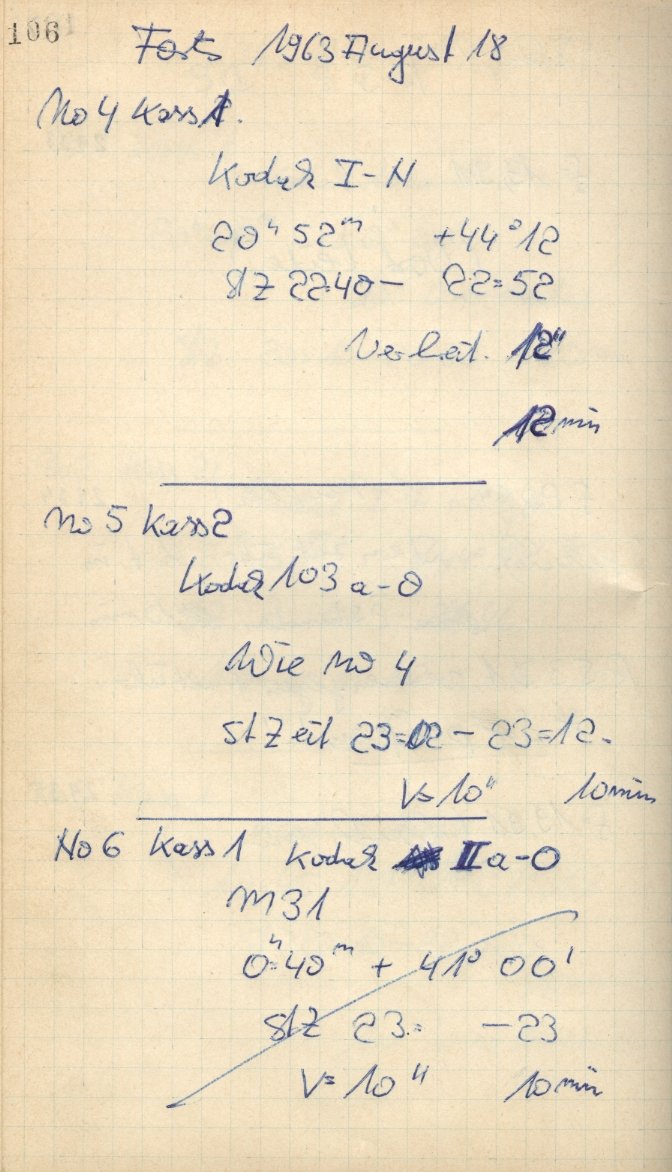 106
Forts 1963 August 18
No 4 Kass 1.
Kodak I-N
20h 52m +44°12
StZ 22=40 - 22=52
Verbeit. 12"
12 min
No 5 Kass 2
Kodak 103 a-O
Wie No 4
StZeit 23=02 - 23=12.
V= 10" 10 min
No 6 Kass 1 Kodak II a-O
M31
0h=40m + 41° 00'
StZ 23= -23
V= 10" 10 min